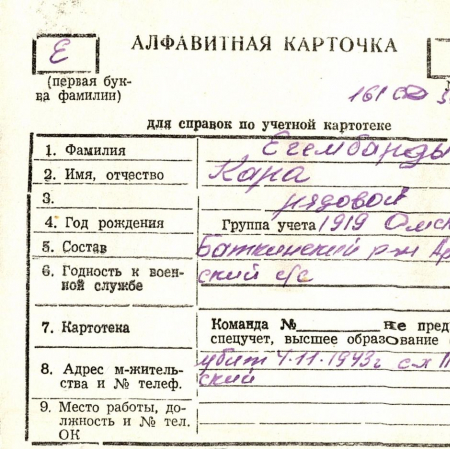 Е
АЛФАВИТНАЯ КАРТОЧКА
(первая бук-
ва фамилии)
161 СД
для справок по учетной картотеке
1. Фамилия Егембарды
2. Имя, отчество Кара
3. рядовой
4. Год рождения Группа учета 1919 Омск
5. Состав Баткинский р-н
6. Годность к воен-
ной службе ский с/с
7. Картотека Команда № не пред
спецучет, высшее образование
8. Адрес м-житель-
ства и № телеф. убит 4.11.1943г с-х
ский
9. Место работы, до-
лжность и № тел.
ОК